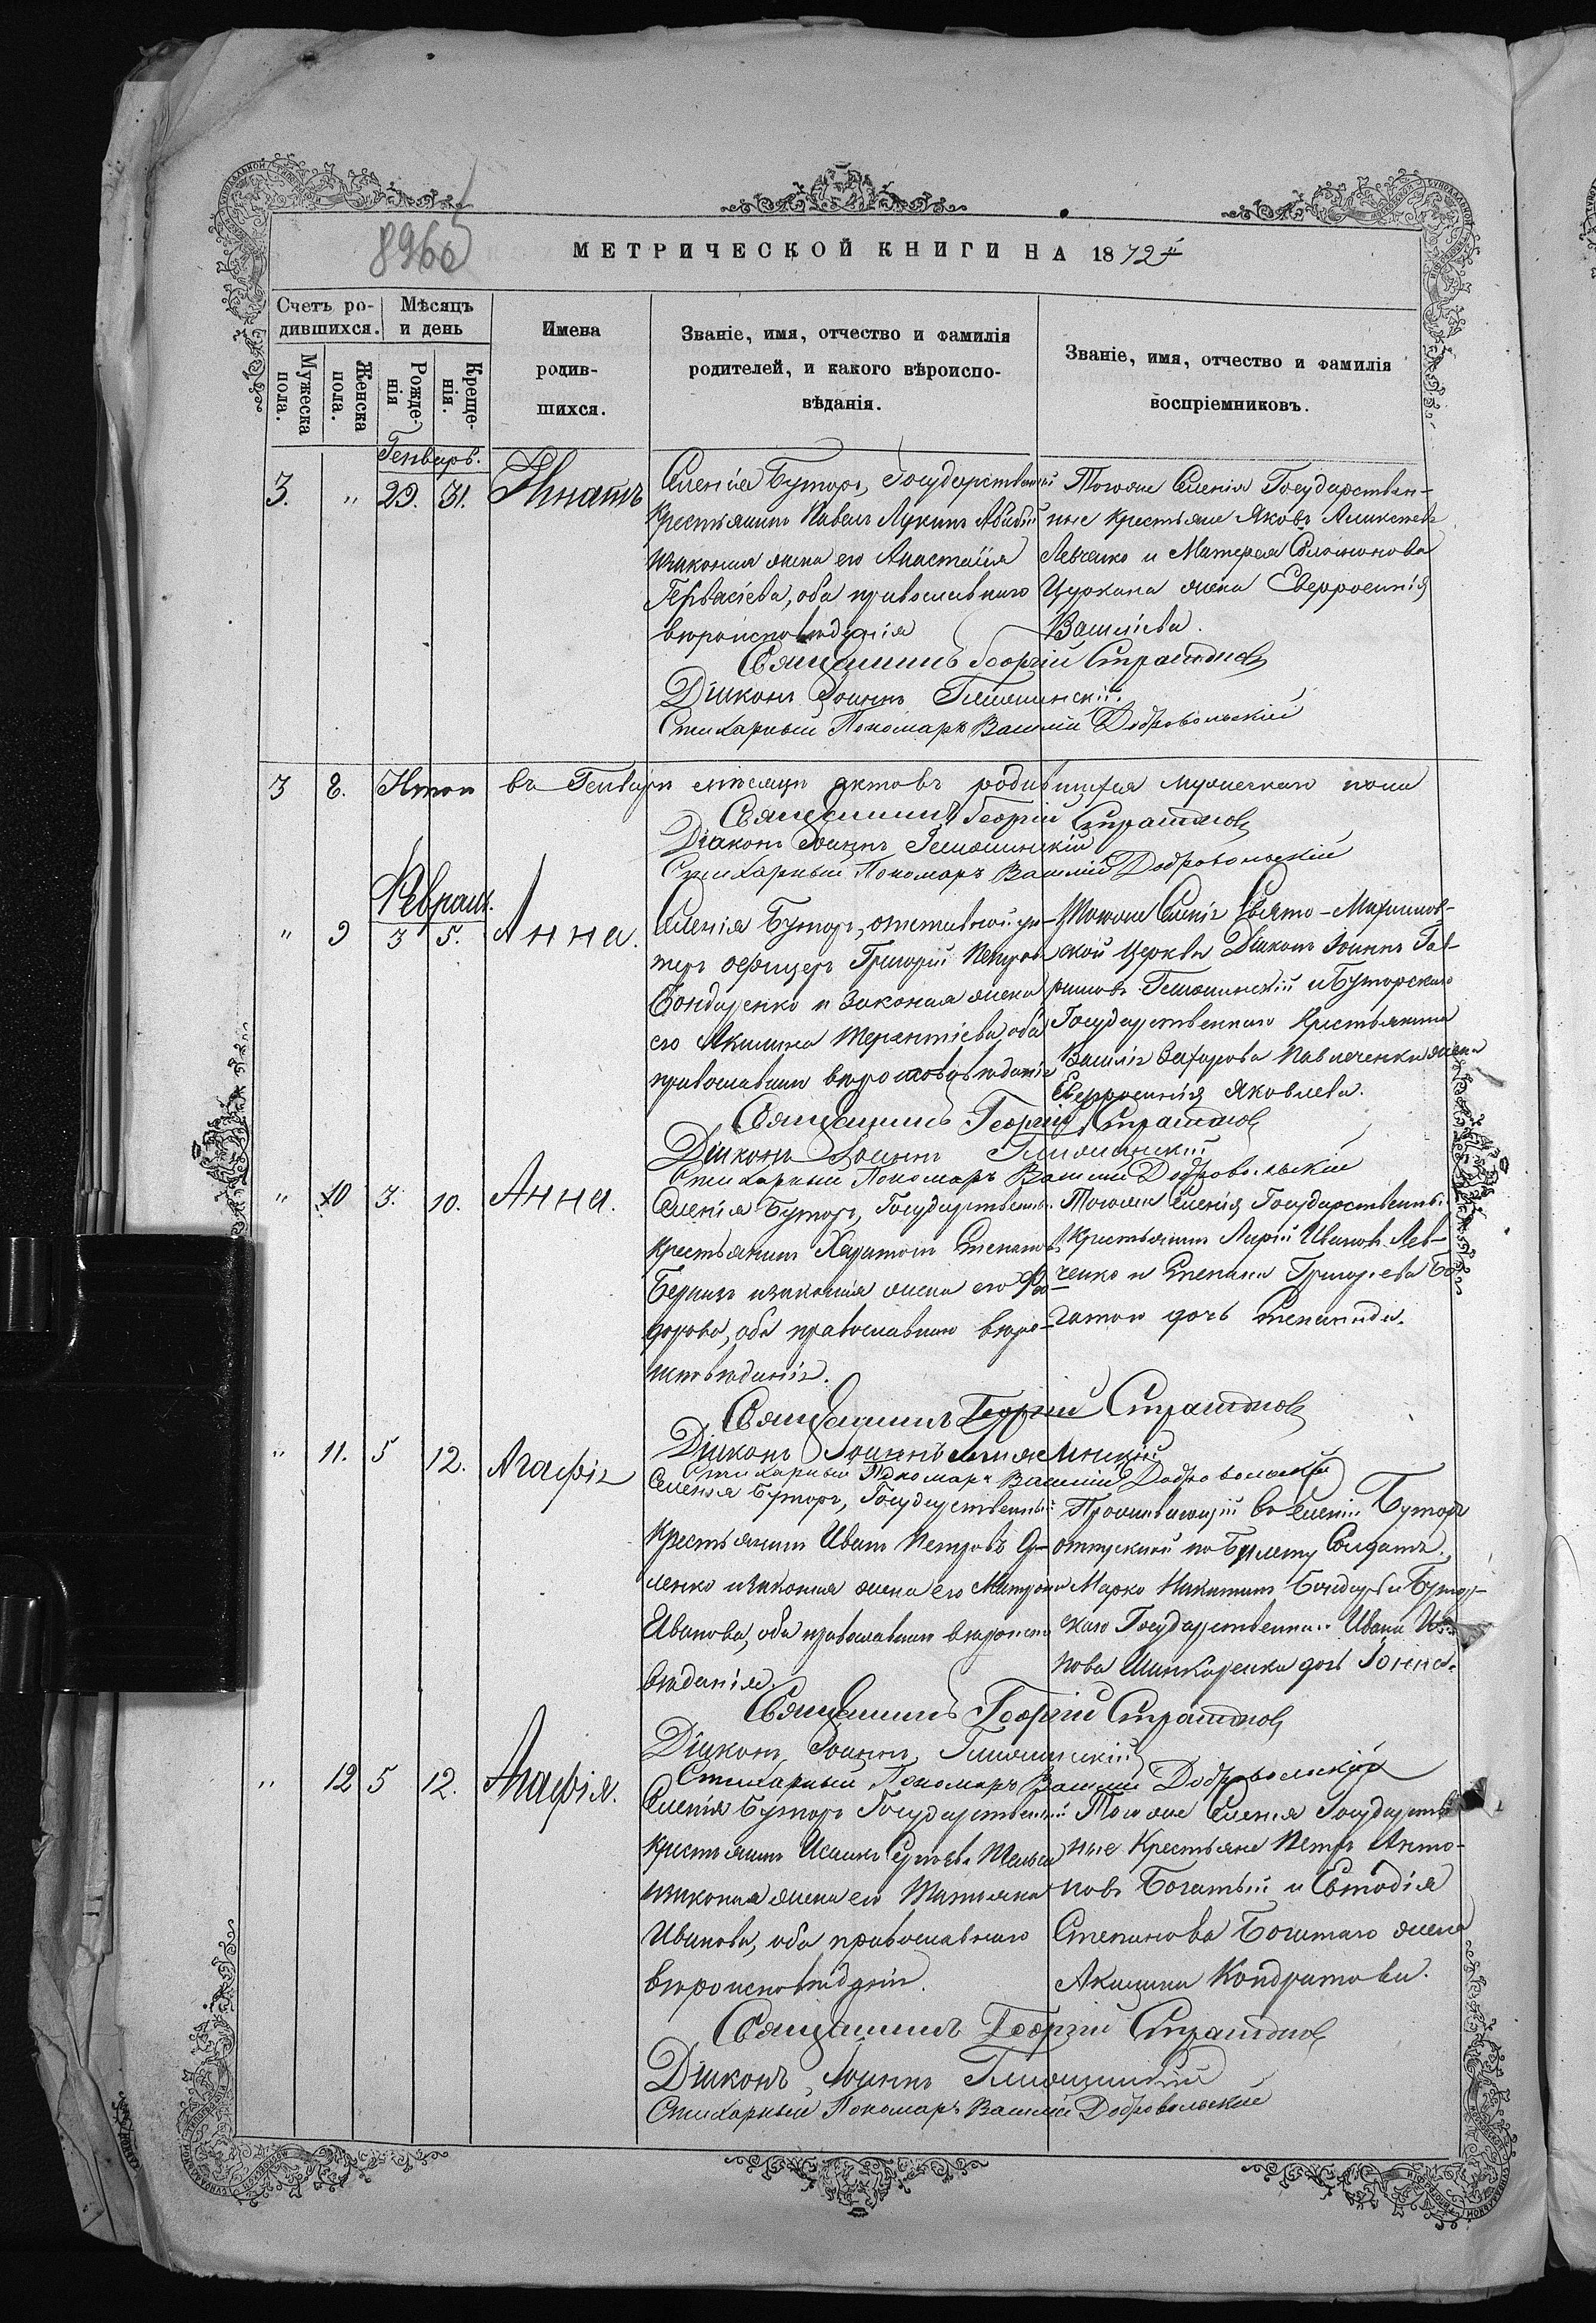 896об
МЕТРИЧЕСКОЙ КНИГИ НА 1872 г
Счетъ ро-
дившихся.
Мѣсяцъ
и день
Мужеска
пола.
Женска
пола.
Рожде-
нія
Креще-
нія.
Имена
родив-
шихся.
Званіе, имя, отчество и фамилія
родителей, и какого вѣроиспо-
вѣданія.
Званіе, имя, отчество и фамилія
воспріемниковъ.
Генварь.
3. " 29. 31. Игнатъ
Селенія Буторъ, Государственный
Крестьянинъ Павелъ Лукинъ
изаконная жена его Анастасія
Гервасіева, оба православнаго
вѣроисповѣданія
Тогоже Селенія Государствен-
ные крестьяне Яковъ Алексѣевъ
Левченко и Матфея Соломонова
Цуркана жена Евфросинія
Василіева.
Священникъ Георгій
Діаконъ Іоаннъ
Стихарный Пономарь Василій Добровольскій
3 8. Итого въ Генварѣ мѣсяцѣ актовъ родившихся мужескаго пола
Священникъ Георгій
Діаконъ Іоаннъ
Стихарный Пономарь Василій Добровольскій
Февраль.
" 9 3 5. Анна.
Селенія Буторъ, отставной ун-
теръ офицеръ Григорій Петровъ
Бондаренко и Законная жена
его Акилина Терентіева, оба
православнаго вѣроисповѣданія
Тогоже Селенія Свято-Михаилов-
ской Церкви Діаконъ Іоаннъ Гав-
риловъ и Буторскаго
Государственнаго Крестьянина
Василія Захарова Павличенка жена
Евфросинія Яковлева.
Священникъ Георгій
Діаконъ Іоаннъ
Стихарный Пономарь Василій Добровольскій
" 10 3. 10. Анна.
Селенія Буторъ, Государственный
Крестьянинъ Харитонъ Степановъ
изаконная жена его Фео-
дорова, оба православнаго вѣро-
исповѣданія.
Тогоже Селенія Государственный
Крестьянинъ Ивановъ Лев-
ченко и Степана Григорьева Бо-
гатои дочь Степанида.
Священникъ Георгій
Діаконъ Іоаннъ
Стихарный Пономарь Василій Добровольскій
" 11. 5 12. Агафія
Селенія Буторъ, Государственный
Крестьянинъ Иванъ Петровъ
изаконная жена его Матрона
Иванова, оба православнаго вѣроиспо
вѣданія.
Проживающій въ Селеніи Буторъ
отпускной по Билету Солдатъ
Марко Никитинъ Бондарь и Бутор-
скаго Государственнаго Ивана
нова Шинкаренка дочь Іоанна.
Священникъ Георгій
Діаконъ Іоаннъ
Стихарный Пономарь Василій Добровольскій
" 12 5 12. Агафія.
Селенія Буторъ Государственный
Крестьянинъ Исаакъ Сергѣевъ
изаконная жена его Татіана
Иванова, оба православнаго
вѣроисповѣданія.
Тогоже Селенія Государствен
ные Крестьяне Петръ Анто-
новъ Богатый и Евтодія
Степанова Богатаго жена
Акилина Кондратова.
Священникъ Георгій
Діаконъ Іоаннъ
Стихарный Пономарь Василій Добровольскій